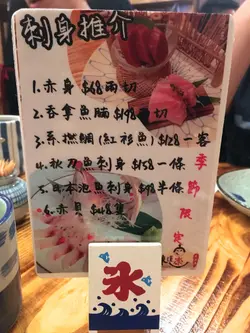 刺身推介
1.赤身 $68兩切
2.吞拿魚腩 $198 切
3.系撚網(紅衫魚)$128一客
4.秋刀魚刺身 $158一條
5.日本池魚刺身 半條
6.赤貝 $48隻
季節限定
氷